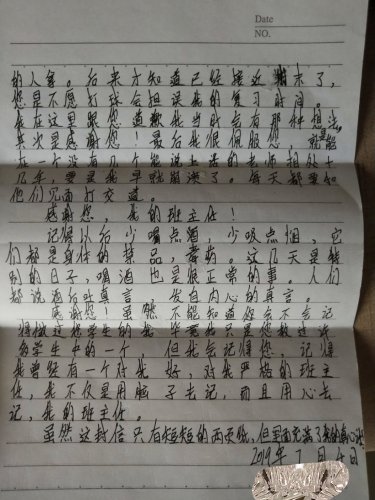 Date
NO.
的人家。后来才知道已经接近期末了,
您是不愿打球会担误我的复习时间。
我在这里跟您道歉我当时会有那种想法
其次是感谢您!最后我很佩服您,就是能
在一个没有几个能说上话的老师相处十
几年,要是我早就崩溃了。每天都要和
他们见面打交道。
感谢您,我的班主任!
记得以后少喝点酒,少吸点烟,它
们都是身体的禁品,毒药。这几天是钱
别的日子,喝酒也是很正常的事。人们
都说酒后吐真言 发自内心的真言。
感谢您!虽然不能知道你会不会记
得做过您学生的我 毕竟我只是您教过许
多学生中的一个,但我会记得您,记得
我曾经有一个对我好,对我严格的班主
任,我不仅是用脑子去记,而且用心去
记,我的班主任。
虽然这封信只有短短的两页纸,但里面充满了我的真心话
2019年7月4日